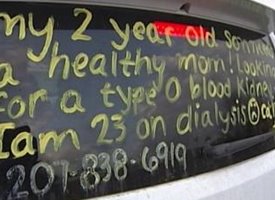 my 2 year old
a healthy mom! Looking
for a type O blood kidney
I am 23 on dialysis
201-838-6919